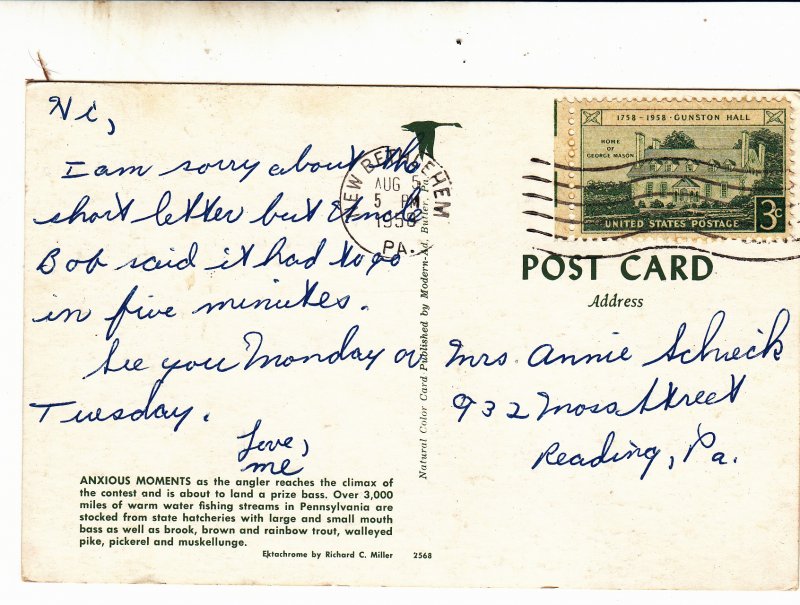 Hi,
I am sorry about the
short letter but Uncle
Bob said it had to go
in five minutes.
See you Monday or
Tuesday.
Love,
me
ANXIOUS MOMENTS as the angler reaches the climax of
the contest and is about to land a prize bass. Over 3,000
miles of warm water fishing streams in Pennsylvania are
stocked from state hatcheries with large and small mouth
bass as well as brook, brown and rainbow trout, walleyed
pike, pickerel and muskellunge.
Ektachrome by Richard C. Miller 2568
Natural Color Card Published by Modern-Ad, Butler, Pa.
NEW BETHLEHEM
AUG 5
5 PM
1958
PA.
1758-1958·GUNSTON HALL
HOME
OF
GEORGE MASON
UNITED STATES POSTAGE
3c
POST CARD
Address
Mrs. Annie Schieck
932 Moss Street
Reading, Pa.